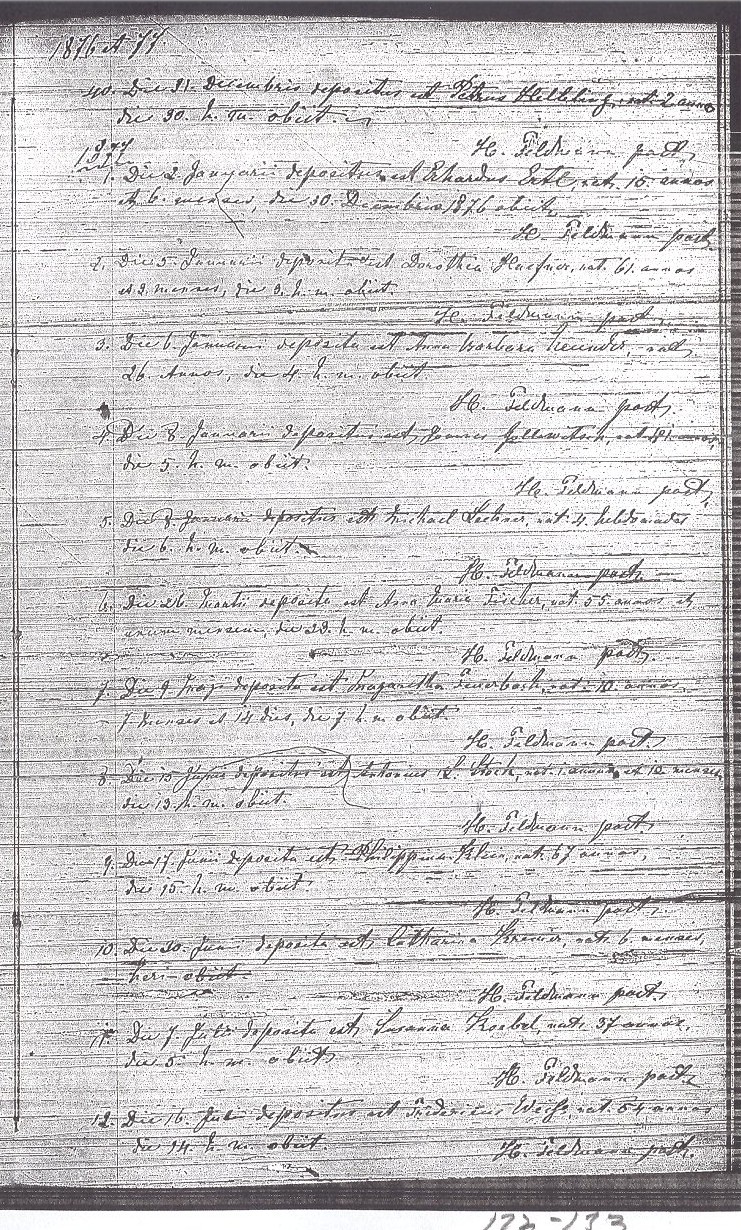 1876 et 77.
40. Die 31. Decembris depositus est Petrus Helbling, nat. 2 annos
die 30. h. m. obiit.
H. Feldmann past.
1877
1. Die 2. Januarii depositus est Erhardus Ertl, nat. 15. annos
et 6. menses, die 30. Decembris 1876 obiit.
H. Feldmann past.
2. Die 5. Januarii deposita est Dorothea Haefner, nat. 61. annos
et 3. menses, die 3. h. m. obiit.
H. Feldmann past.
3. Die 6. Januarii deposita est Anna Barbara nat.
26. Annos, die 4. h. m. obiit.
H. Feldmann past.
4. Die 8. Januarii depositus est Joannes nat. annos,
die 5. h. m. obiit.
H. Feldmann past.
5. Die 8. Januarii depositus est Michael Lechner, nat. 4. hebdomades
die 6. h. m. obiit.
H. Feldmann past.
6. Die 26. Martii deposita est Anna Maria Fischer, nat. 55. annos et
unum mensem, die 23. h. m. obiit.
H. Feldmann past.
7. Die 9. Maji deposita est Margaretha Feuerbach, nat. 10. annos,
7 menses et 14 dies, die 7. h. m. obiit.
H. Feldmann past.
8. Die 15. Junii depositus est Antonius L. Stock, nat. 1. annum et 10. menses,
die 13. h. m. obiit.
H. Feldmann past.
9. Die 17. Junii deposita est Philippina Klein, nat. 67 annos,
die 15. h. m. obiit.
H. Feldmann past.
10. Die 30. Junii deposita est Catharina Kremer, nat. 6. menses,
heri obiit.
H. Feldmann past.
11. Die 7. Julii deposita est Susanna Koebel, nat. 37 annos,
die 5. h. m. obiit.
H. Feldmann past.
12. Die 16. Julii depositus est Fridericus Weiss, nat. 54 annos
die 14. h. m. obiit.
H. Feldmann past.
132-133